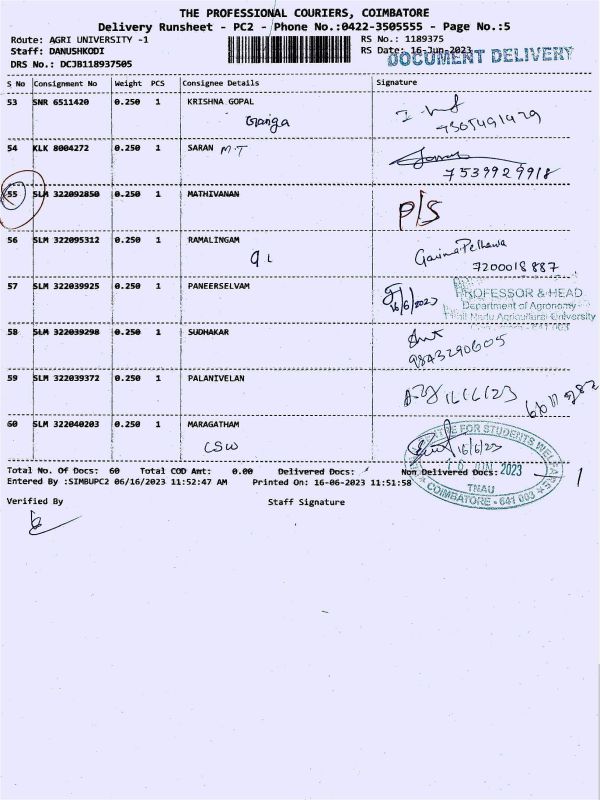 THE PROFESSIONAL COURIERS, COIMBATORE
Delivery Runsheet - PC2 - Phone No.:0422-3505555 - Page No.:5
Route: AGRI UNIVERSITY -1 RS No.: 1189375
Staff: DANUSHKODI RS Date: 16-Jun-2023
DOCUMENT DELIVERY
DRS No.: DCJB118937505
S No Consignment No Weight PCS Consignee Details Signature
53 SNR 6511420 0.250 1 KRISHNA GOPAL
Ganga
54 KLK 8004272 0.250 1 SARAN M.T
7539929918
55 SLM 322092850 0.250 1 MATHIVANAN
P/S
56 SLM 322095312 0.250 1 RAMALINGAM
7200018887
57 SLM 322039925 0.250 1 PANEERSELVAM
16/6/2023
PROFESSOR & HEAD
Department of Agronomy
Tamil Nadu Agricultural University
641 003
58 SLM 322039298 0.250 1 SUDHAKAR
9843290605
59 SLM 322039372 0.250 1 PALANIVELAN
16/6/23
60 SLM 322040203 0.250 1 MARAGATHAM
CSW
16/6/23
CENTRE FOR STUDENTS WELFARE
16 JUN 2023
TNAU
COIMBATORE - 641 003
Total No. Of Docs: 60 Total COD Amt: 0.00 Delivered Docs: Non Delivered Docs: 1
Entered By :SIMBUPC2 06/16/2023 11:52:47 AM Printed On: 16-06-2023 11:51:58
Verified By Staff Signature